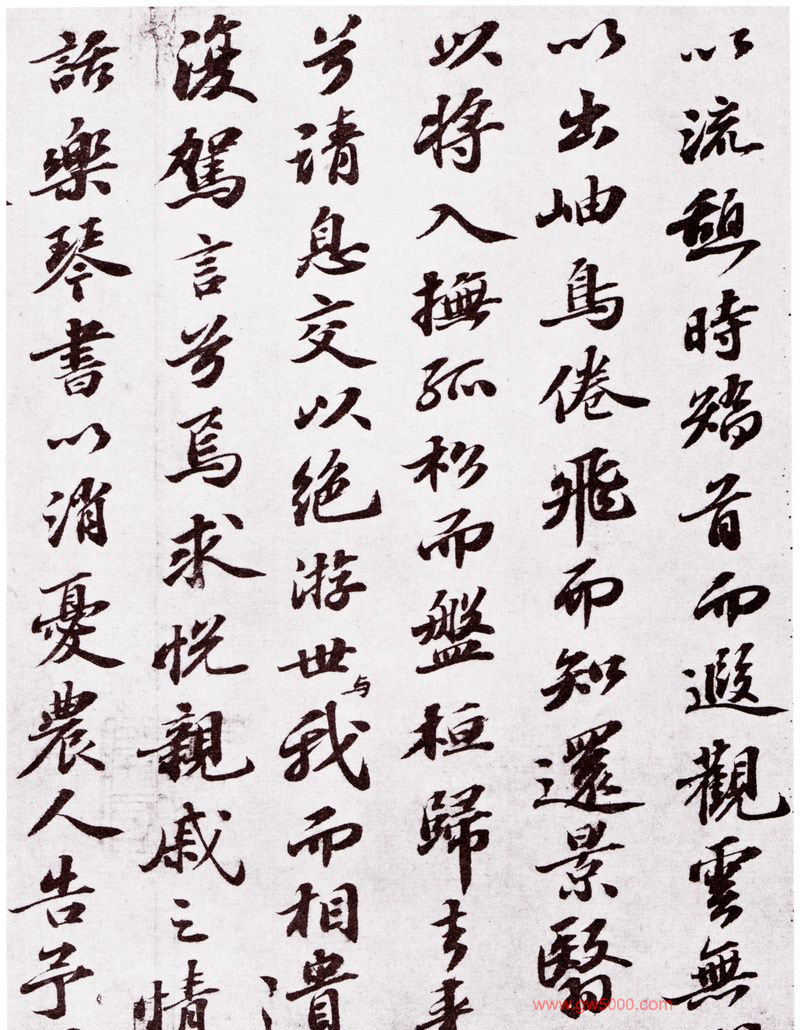 以流憩時矯首而遐觀雲無
以出岫鳥倦飛而知還景翳
以將入撫孤松而盤桓歸去來
兮請息交以絕游世与我而相遺
復駕言兮焉求悅親戚之情
話樂琴書以消憂農人告予
www.gw5000.com